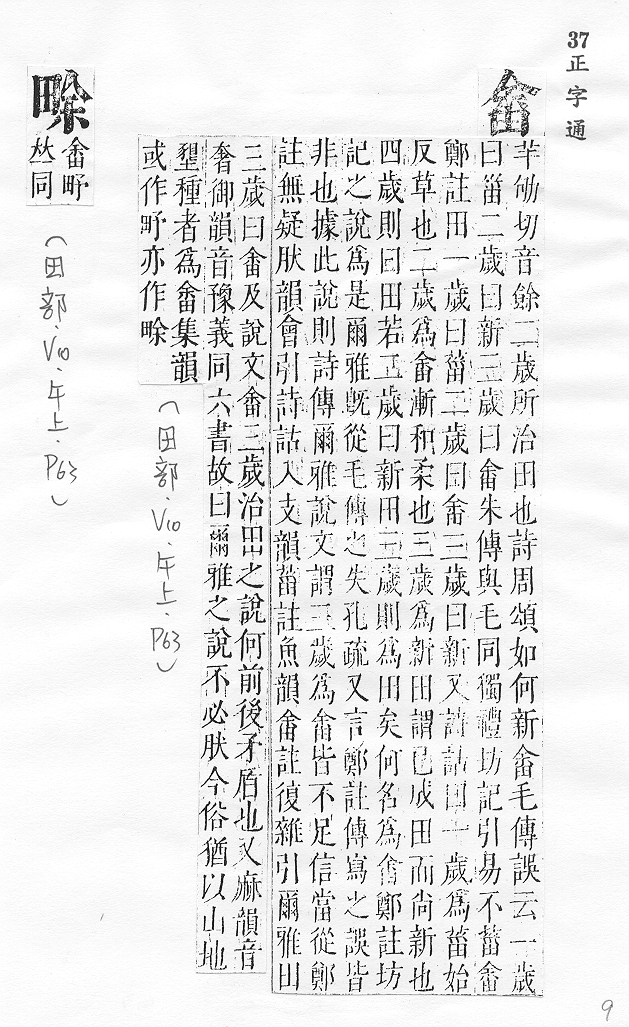 37正字通
畬
羊劬切音餘二歲所治田也詩周頌如何新畬毛傳誤云一歲
曰菑二歲曰新三歲曰畬朱傳與毛同獨禮坊記引易不菑畬
鄭註田一歲曰菑二歲曰畬三歲曰新又詩詁曰一歲為菑始
反草也二歲為畬漸和柔也三歲為新田謂已成田而尚新也
四歲則曰田若二歲曰新田三歲則為田矣何名為畬鄭註坊
記之說為是爾雅旣從毛傳之失孔疏又言鄭註傳寫之誤皆
非也據此說則詩傳爾雅說文謂三歲為畬皆不足信當從鄭
註無疑肰韻會引詩詁入支韻菑註魚韻畬註復雜引爾雅田
三歲曰畬及說文畬三歲治田之說何前後矛盾也又麻韻音
奢御韻音豫義同六書故曰爾雅之說不必肰今俗猶以山地
墾種者為畬集韻
或作野亦作畭
(田部.V10.午上.P63)
畭
畬野
𠀤同
(田部.V10.午上.P63)
9